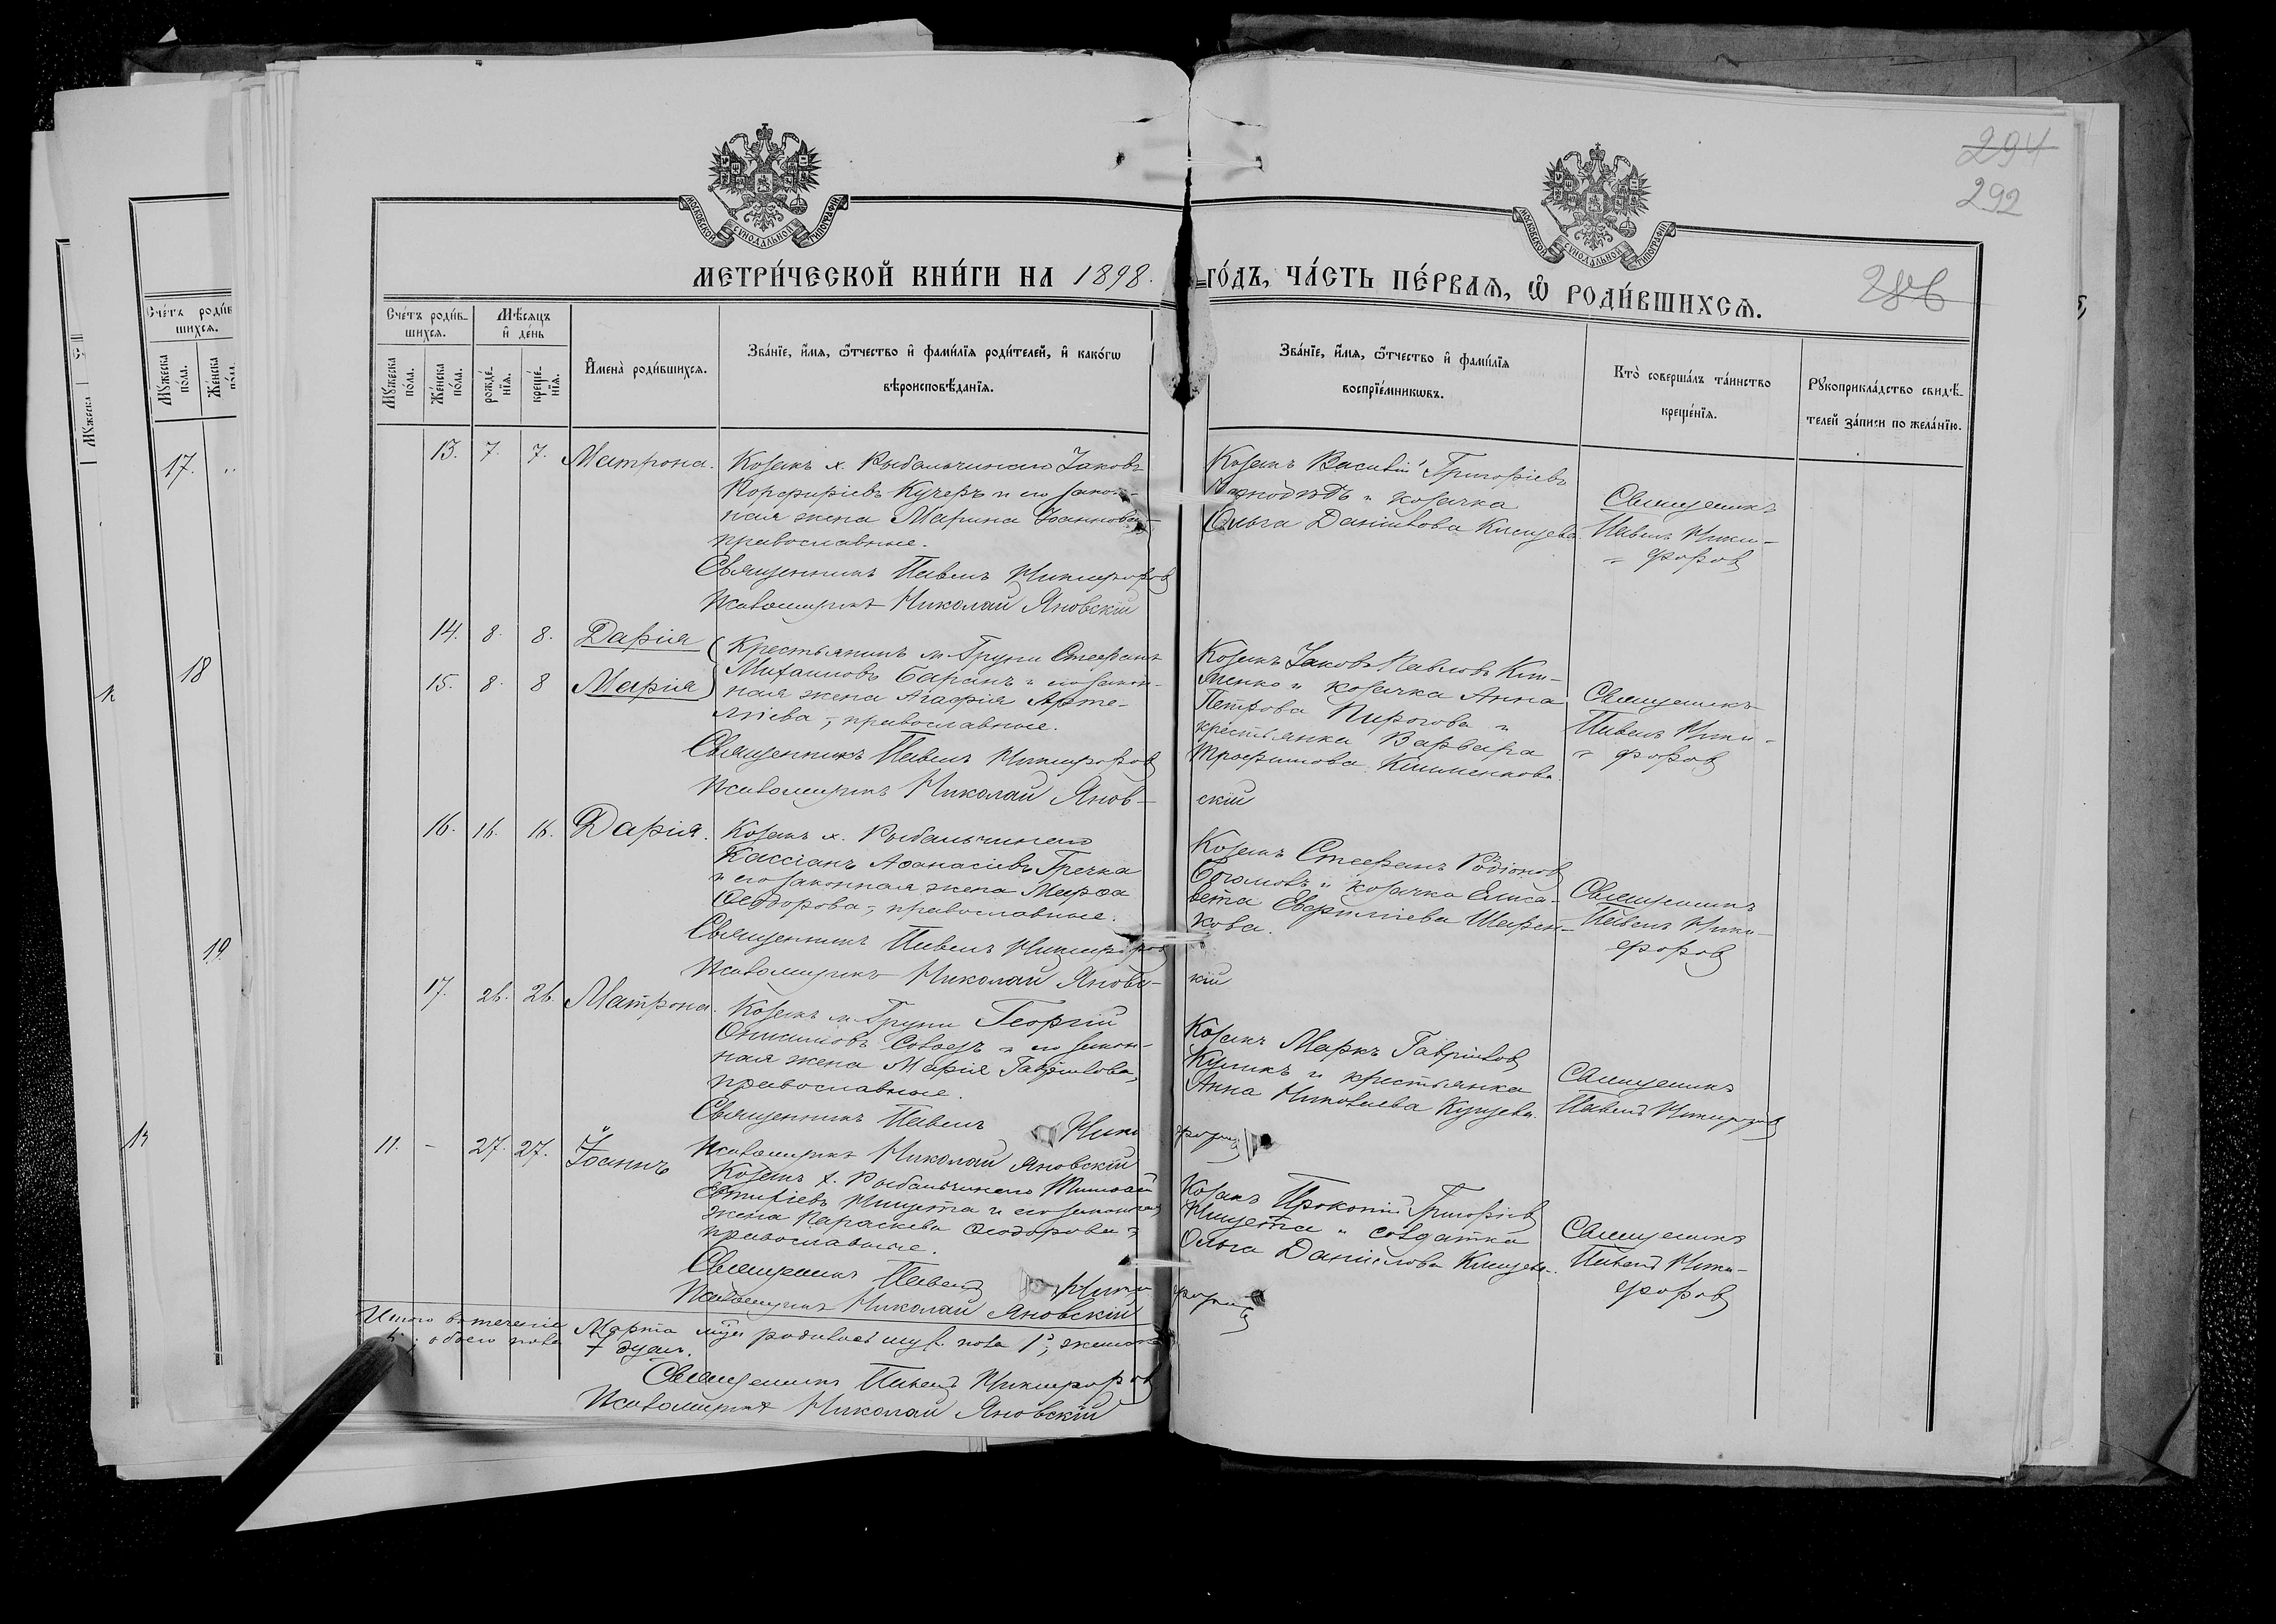 294
292
286
МОСКОВСКОЙ СУНОДАЛЬНОЙ ТИПОГРАФІИ
МОСКОВСКОЙ СУНОДАЛЬНОЙ ТИПОГРАФІИ
МЕТРИ́ЧЕСКОЙ КНИ́ГИ НА 1898. ГО́ДЪ, ЧА́СТЬ ПЕ́РВАЯ, Ѿ РОДИ́ВШИХСЯ.
Сче́тъ роди́в-
шихся.
Мѣ́сяцъ
и҆ де́нь
Мꙋ́жеска
по́ла.
Же́нска
по́ла.
рожде́-
нїя.
креще́-
нїя.
И҆мена̀ роди́вшихся.
Зва́нїе, и҆́мя, ѻ҆́тчество и҆ фами́лїя роди́телей, и҆ како́гѡ
вѣроисповѣ́данїя.
Зва́нїе, и҆́мя, ѻ҆́тчество и҆ фами́лїя
воспрїе́мникѡвъ.
Кто̀ соверша́лъ та́инство
креще́нїя.
Рꙋкоприкла́дство свидѣ́-
телей за́писи по жела́нїю.
13. 7. 7. Матрона.
Козакъ х. Рыбальчинаго Іаковъ
Порфиріевъ Кучеръ и его закон-
ная жена Марина Іоаннова,
православные.
Священникъ Павелъ Никифоров
Псаломщикъ Николай Яновскій
Козакъ Василій Григоріевъ
и козачка
Ольга Даніилова Клищева
Священникъ
Павелъ Ники-
форов
14. 8. 8. Дарія
15. 8. 8 Марія
Крестьянинъ м. Груни Стефанъ
Михаиловъ Баранъ и его закон-
ная жена Агафія Арте-
міева, православные.
Священникъ Павелъ Никифоров
Псаломщикъ Николай Янов-
скій
Козакъ Іаковъ Павловъ Кли-
менко и козачка Анна
Петрова Пирогова и
крестьянка Варвара
Трофимова Клименкова.
Священникъ
Павелъ Ники-
форов
16. 16. 16. Дарія.
Козакъ х. Рыбальчинаго
Кассіанъ Аѳанасіевъ Гречка
и его законная жена Марѳа
Ѳеодорова, православные.
Священникъ Павелъ Никифоров
Псаломщикъ Николай Яновс-
кій
Козакъ Стефанъ Родіонов
и козачка Елиса-
вета Евфиміева Шафен-
кова.
Священникъ
Павелъ Ники-
форов
17. 26. 26. Матрона.
Козакъ м. Груни Георгій
Онисимовъ и его закон-
ная жена Марія Гавріилова,
православные.
Священникъ Павелъ Ники
форов
Псаломщикъ Николай Яновскій
Козакъ Маркъ Гавріилов
Куликъ и крестьянка
Анна Николаева Куцева.
Священникъ
Павелъ Никифоров
11. - 27. 27. Іоаннъ
Козакъ х. Рыбальчинаго Тимоѳей
Евтихіевъ Нищета и его законная
жена Параскева Ѳеодорова,
православные.
Священникъ Павелъ Ники
форов
Псаломщикъ Николай Яновскій
Козакъ Прокопій Григоріев
Нищета и солдатка
Ольга Даніилова Клищева.
Священникъ
Павелъ Ники-
форов
Итого въ теченіе Марта м-ца родилось муж. пола 1, женска
обоего пола 7 душъ.
Священникъ Павелъ Никифоров
Псаломщикъ Николай Яновскій
Сче́тъ роди́в
шихся.
Мꙋ́жеска
по́ла.
Же́нска
по́ла.
17.
18
19
Мꙋ́жеска